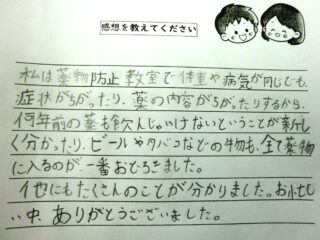 感想を教えてください
私は薬物防止教室で体重や病気が同じでも、
症状がちがったり、薬の内容がちがったりするから、
何年前の薬も飲んじゃいけないということが新し
く分かったり、ビールやタバコなどの物も、全て薬物
に入るのが、一番おどろきました。
他にもたくさんのことが分かりました。お忙し
い中、ありがとうございました。